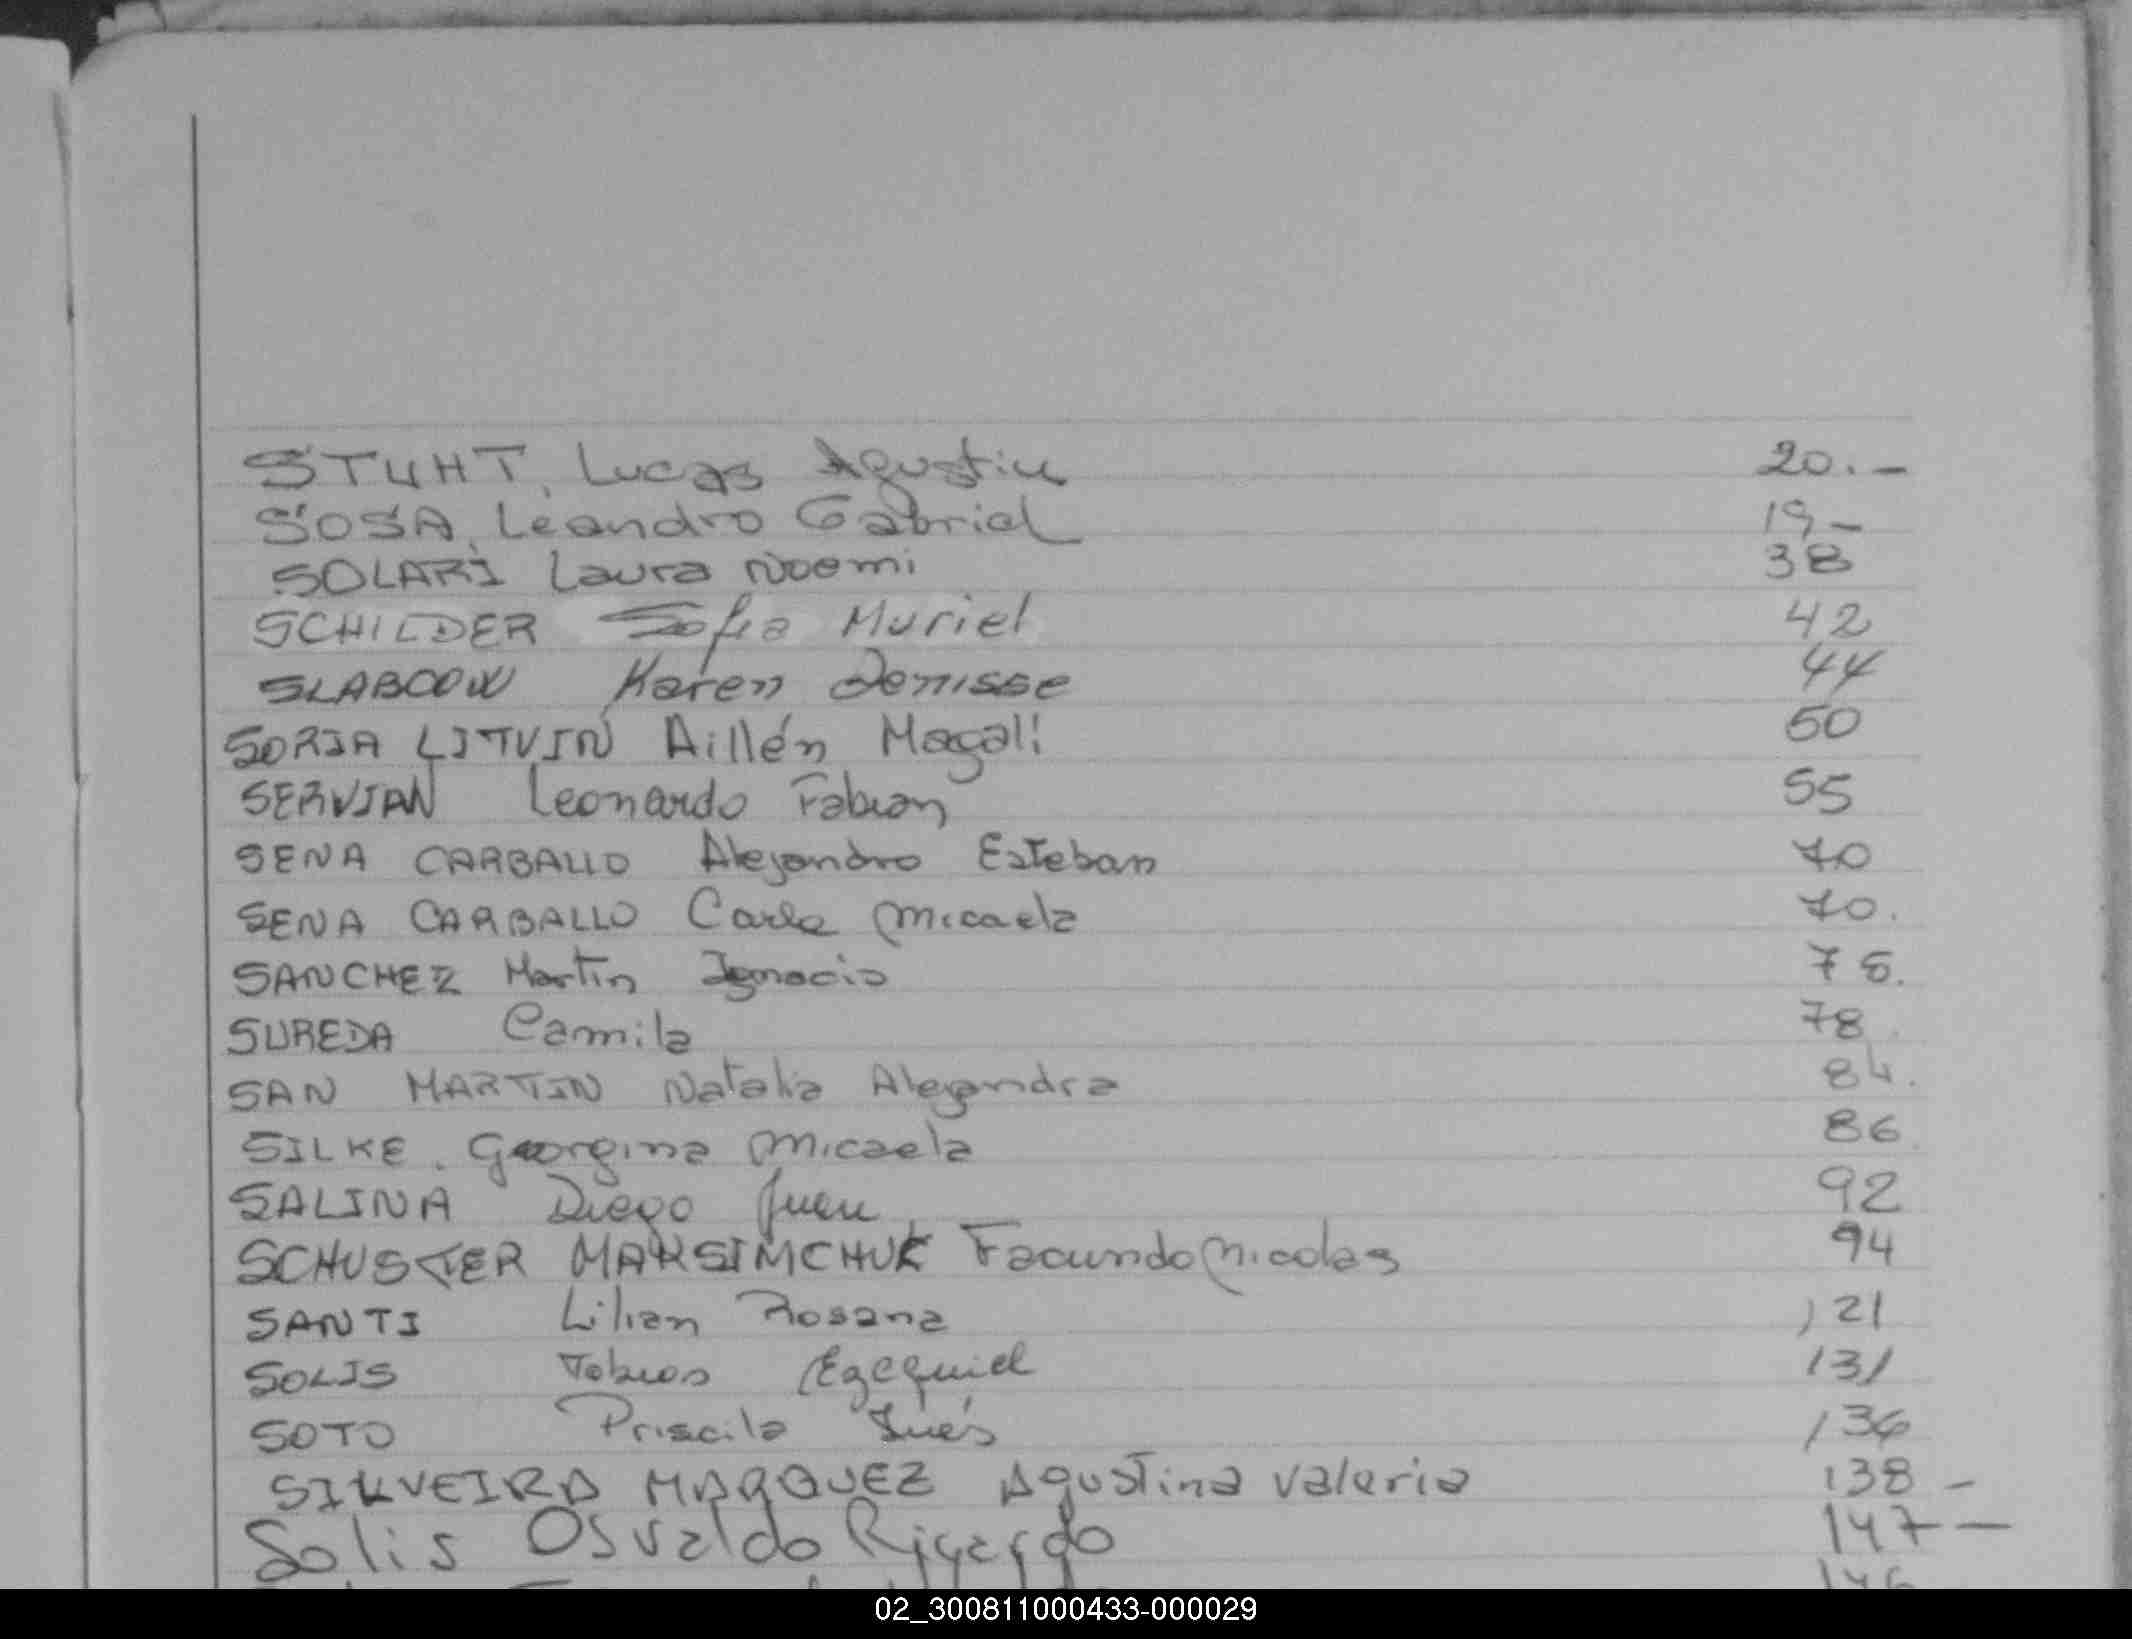 STUHT, Lucas Agustin 20.-
SOSA, Leandro Gabriel 19-
SOLARI Laura Noemi 38
SCHILDER Sofia Muriel 42
SLABCOW Karen Denisse 44
SORIA LITVIN Aillén Magali 50
SERVIAN Leonardo Fabian 55
SENA CARBALLO Alejandro Esteban 70
SENA CARBALLO Carla Micaela 70.
SANCHEZ Martin Ignacio 75.
SUREDA Camila 78
SAN MARTIN Natalia Alejandra 84.
SILKE. Georgina Micaela 86
SALINA Diego Juan 92
SCHUSTER MAKSIMCHUK Facundo Nicolas 94
SANTI Lilian Rosana 121
SOLIS Tobias Ezequiel 131
SOTO Priscila Inés 136
SILVEIRA MARQUEZ Agustina Valeria 138 -
Solis Osvaldo Ricardo 147-
146
02_300811000433-000029